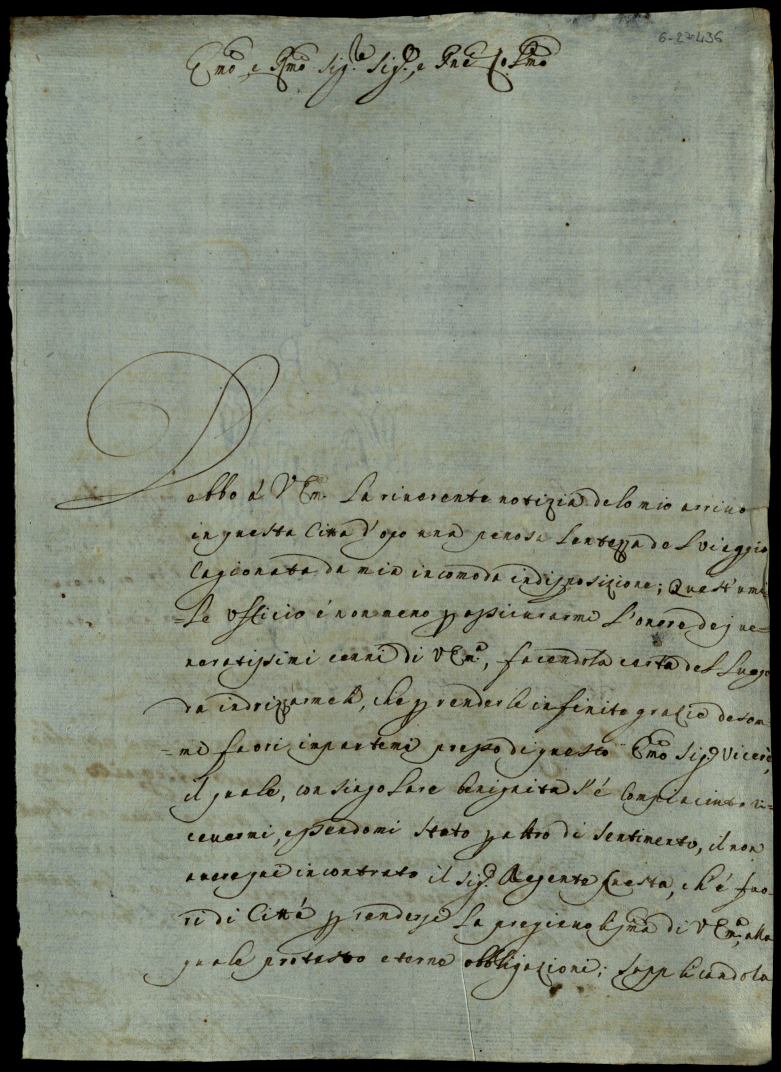 6-27436
Emo, e Rmo Sig.re Sig.r, e Pne Colmo
Debbo á V Em.a la riverente notizia delo mio arrivo
in questa Città d'opo una penosa lentezza del viaggio
cagionata da mia incomoda indisposizione; Quest'umi
=le ufficio é non meno p assicurarmi l'onore de j ve=
neratissimi cenni di V Em.a, facendola certa del luogo
da indrizzarmeli, che p renderle infinite grazie de som
=mi favori impartemi presso di questo Emo Sig.r Vicerè,
il quale, con singolare benignità s'é compiacinto ri=
cevermi, essendomi stato p altro di sentimento, il non
avere qui incontrato il Sig.r Regente Cuesta, ch'é fuo=
ri di Città p renderse la pregieno di V Em.a, alla
quale protesto eterne obbligazioni; supplicandola